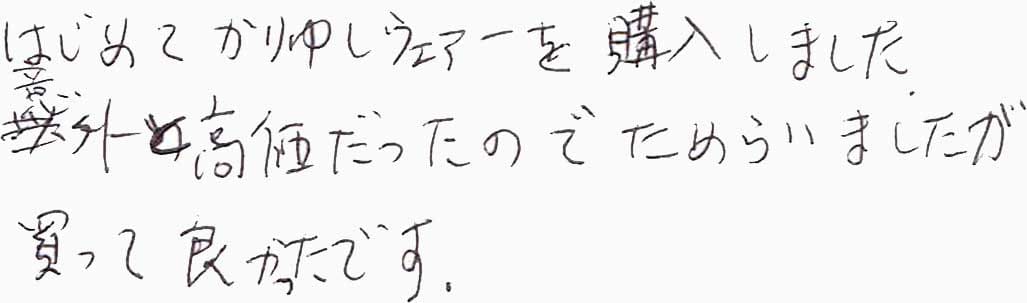 はじめてかりゆしウェアーを購入しました.
意外と高価だったのでためらいましたが
買って良かったです.